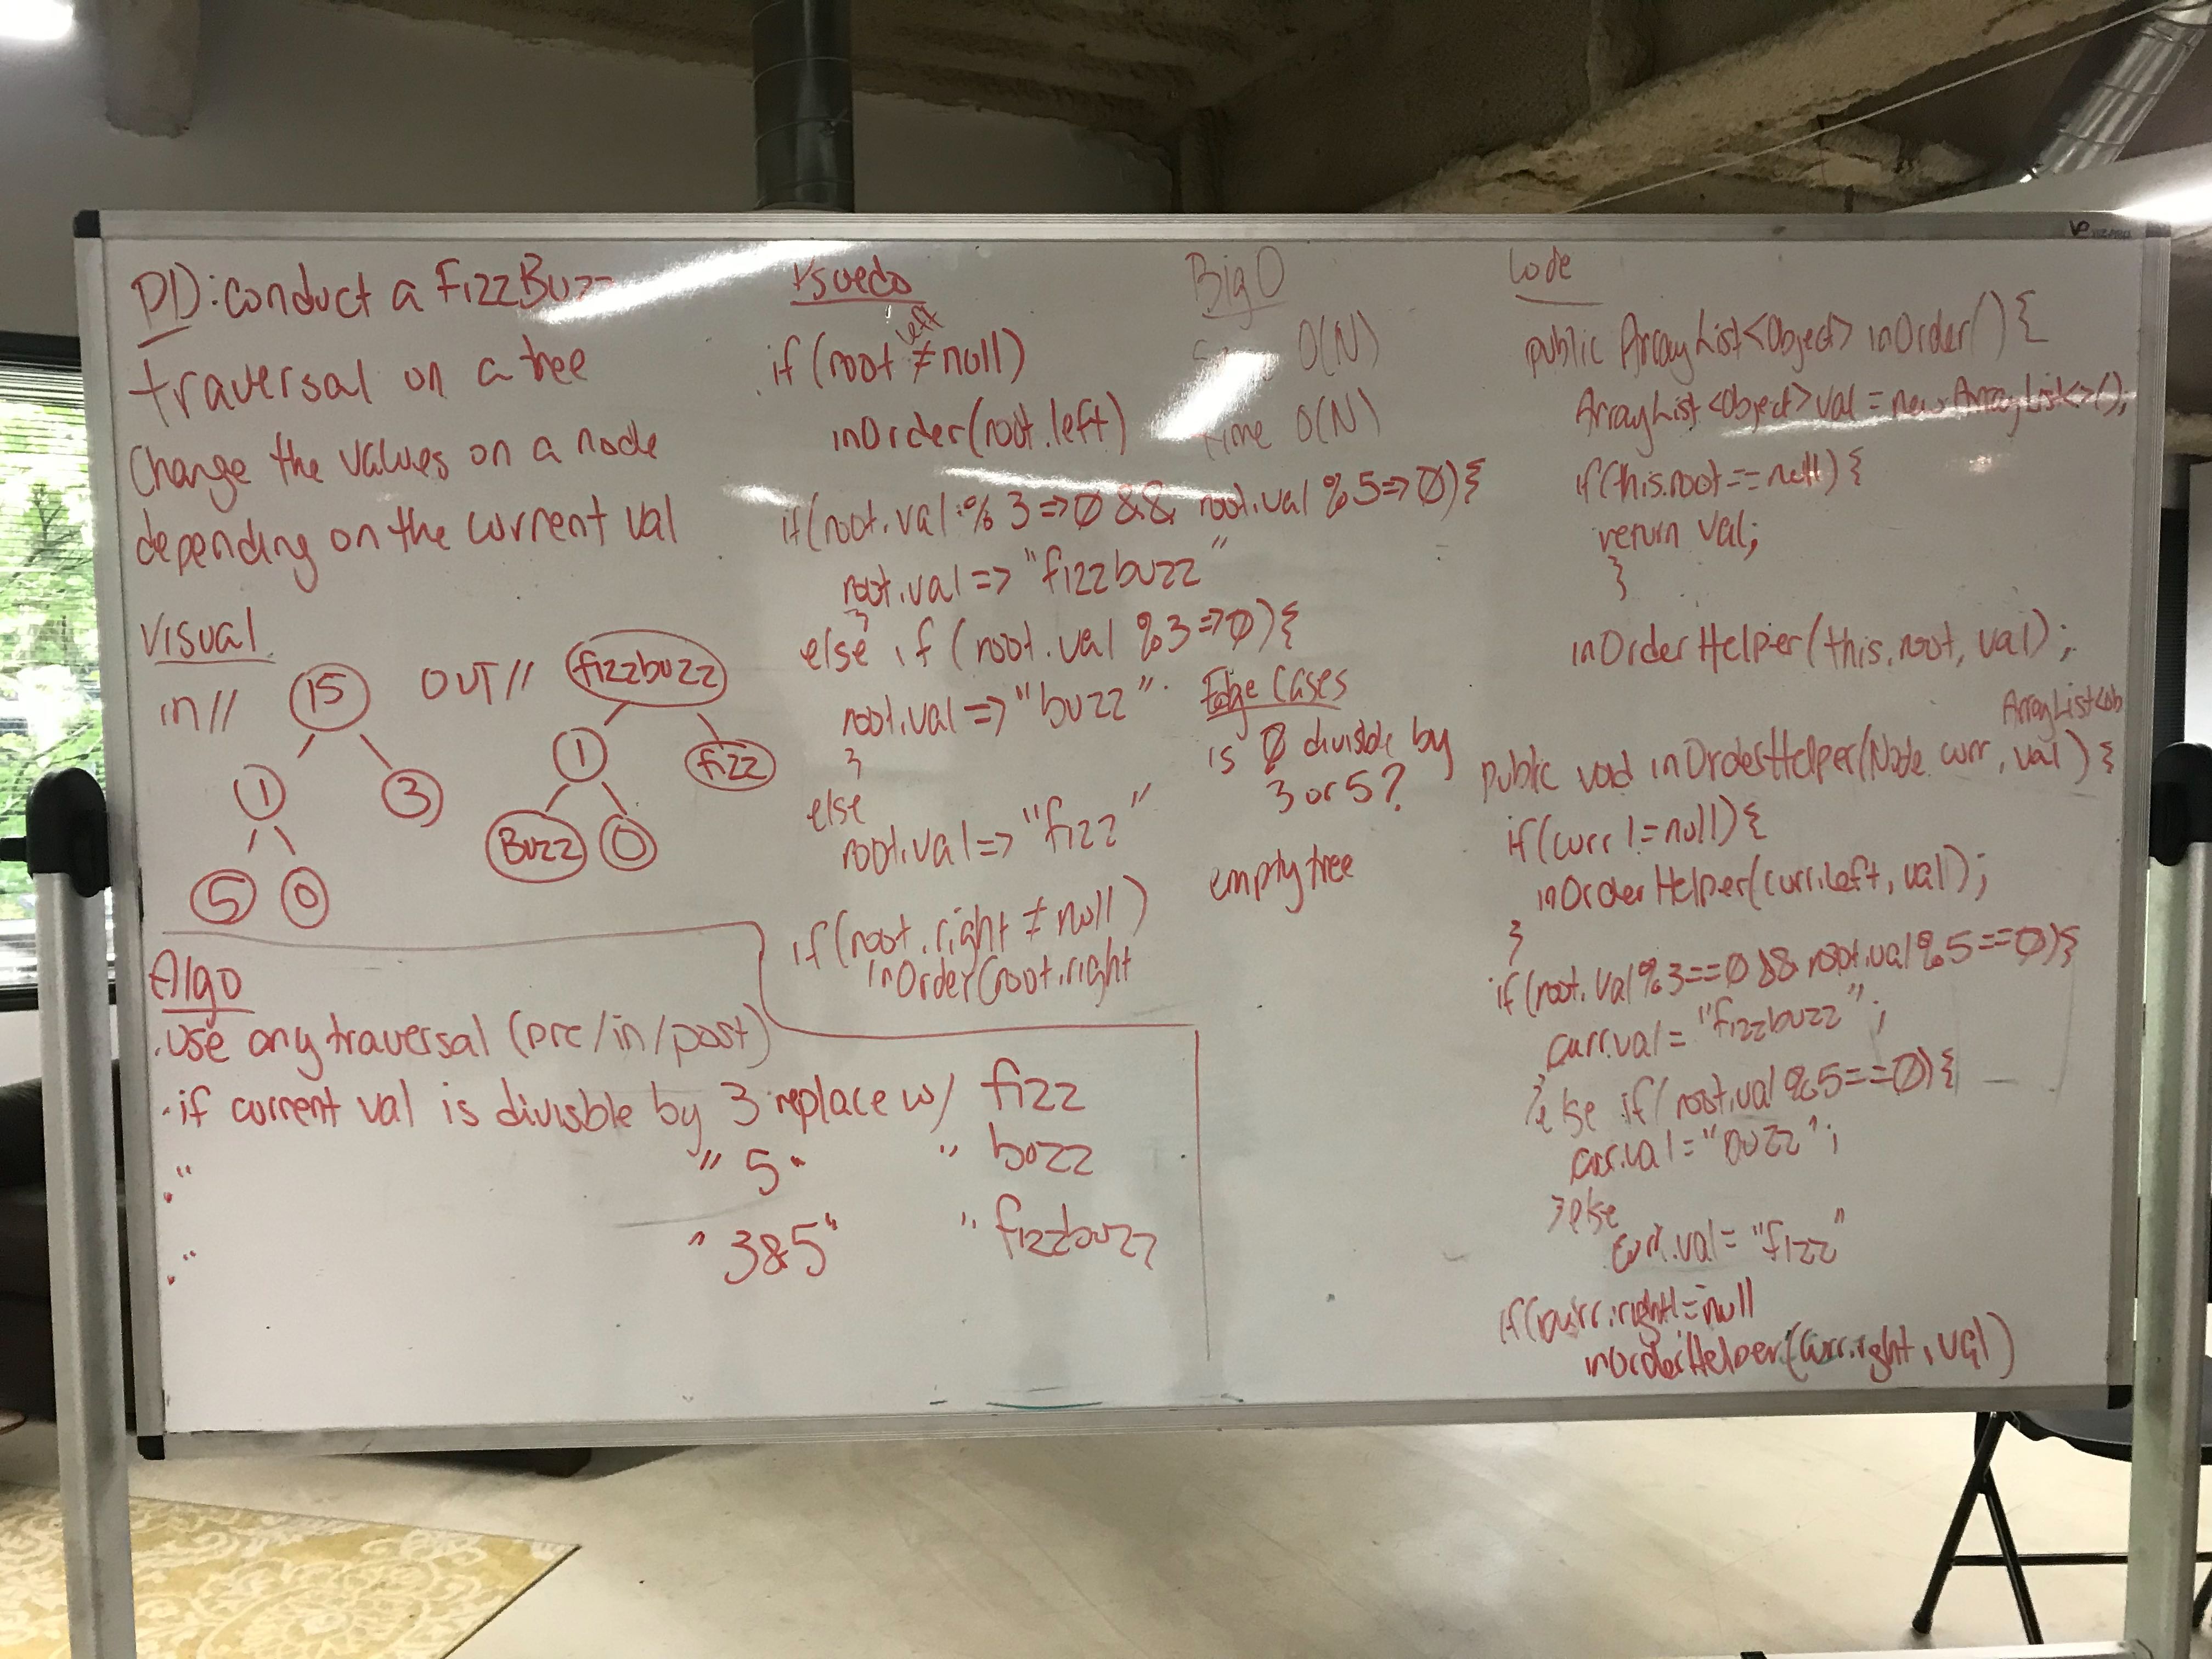 PD: conduct a FizzBuzz
traversal on a tree
Change the values on a node
depending on the current val
Visual
in//
15
1
3
5
0
OUT//
fizzbuzz
1
fizz
Buzz
0
Algo
. use any traversal (pre/in/post)
. if current val is divisble by 3 replace w/ fizz
. " " 5 " " buzz
. " " 3&5 " " fizzbuzz
Psuedo
left
if (root ≠ null)
inOrder(root.left)
if(root.val % 3 => 0 && root.val % 5 => 0){
root.val => "fizzbuzz"
}
else if (root.val % 3 => 0){
root.val => "buzz"
}
else
root.val => "fizz"
if (root.right ≠ null)
inOrder(root.right
Big O
O(N)
time O(N)
Edge Cases
is 0 divisble by
3 or 5?
empty tree
Code
public ArrayList<Object> inOrder() {
ArrayList<Object> val = new ArrayList<>();
if(this.root == null) {
return val;
}
inOrderHelper(this.root, val);
ArrayList<Ob
public void inOrderHelper(Node curr, val) {
if(curr != null){
inOrderHelper(curr.left, val);
}
if(root.val % 3 == 0 && root.val % 5 == 0){
curr.val = "fizzbuzz";
}else if(root.val % 5 == 0){
curr.val = "buzz";
}else
curr.val = "fizz"
if(curr.right != null
inOrderHelper(curr.right, val)